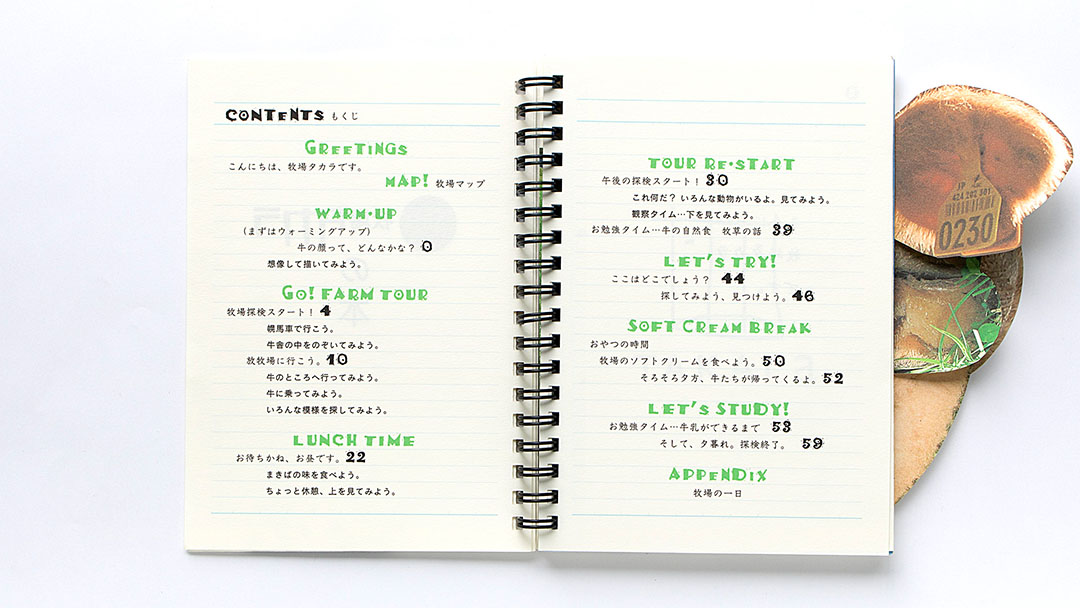 CONTENTS もくじ
GREETINGS
こんにちは、牧場タカラです。
MAP! 牧場マップ
WARM-UP
(まずはウォーミングアップ)
牛の顔って、どんなかな? 0
想像して描いてみよう。
GO! FARM TOUR
牧場探検スタート! 4
幌馬車で行こう。
牛舎の中をのぞいてみよう。
放牧場に行こう。10
牛のところへ行ってみよう。
牛に乗ってみよう。
いろんな模様を探してみよう。
LUNCH TIME
お待ちかね、お昼です。22
まきばの味を食べよう。
ちょっと休憩、上を見てみよう。
TOUR RE・START
午後の探検スタート! 30
これ何だ? いろんな動物がいるよ。見てみよう。
観察タイム…下を見てみよう。
お勉強タイム…牛の自然食 牧草の話 39
LET'S TRY!
ここはどこでしょう? 44
探してみよう、見つけよう。46
SOFT CREAM BREAK
おやつの時間
牧場のソフトクリームを食べよう。50
そろそろ夕方、牛たちが帰ってくるよ。52
LET'S STUDY!
お勉強タイム…牛乳ができるまで 53
そして、夕暮れ。探検終了。 59
APPENDIX
牧場の一日
JP
0230